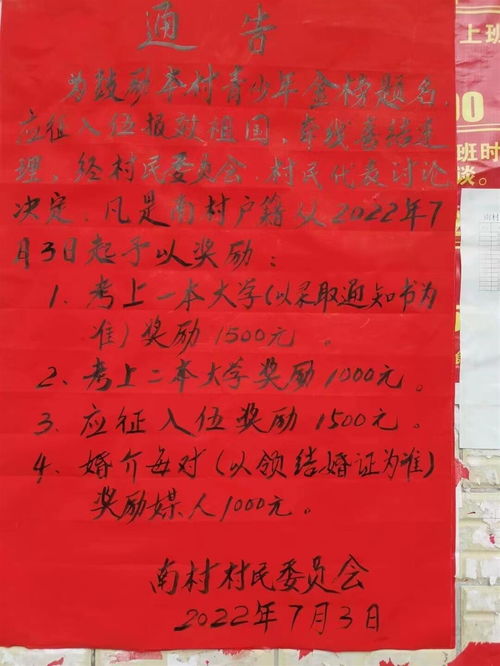 通告
为鼓励本村青少年金榜题名,
应征入伍报效祖国,牵线喜结连
理,经村民委员会、村民代表讨论
决定,凡是南村户籍从2022年7
月3日起予以奖励:
1、考上一本大学(以录取通知书为
准)奖励1500元。
2、考上二本大学奖励1000元。
3、应征入伍奖励1500元。
4、婚介每对(以领结婚证为准)
奖励媒人1000元。
南村村民委员会
2022年7月3日
上班
00
班时
谈。